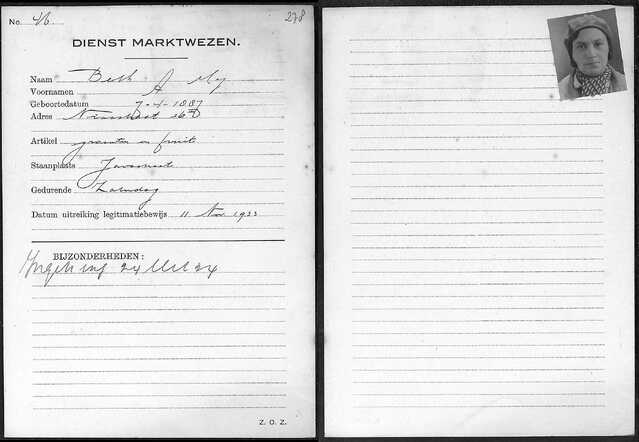 No. 46. 278
DIENST MARKTWEZEN.
Naam Beth
Voornamen A
Geboortedatum 7-4-1887
Adres
Artikel groenten en fruit
Staanplaats Javastraat
Gedurende Zaterdag
Datum uitreiking legitimatiebewijs 11 Nov 1933
BIJZONDERHEDEN:
24 24
Z. O. Z.